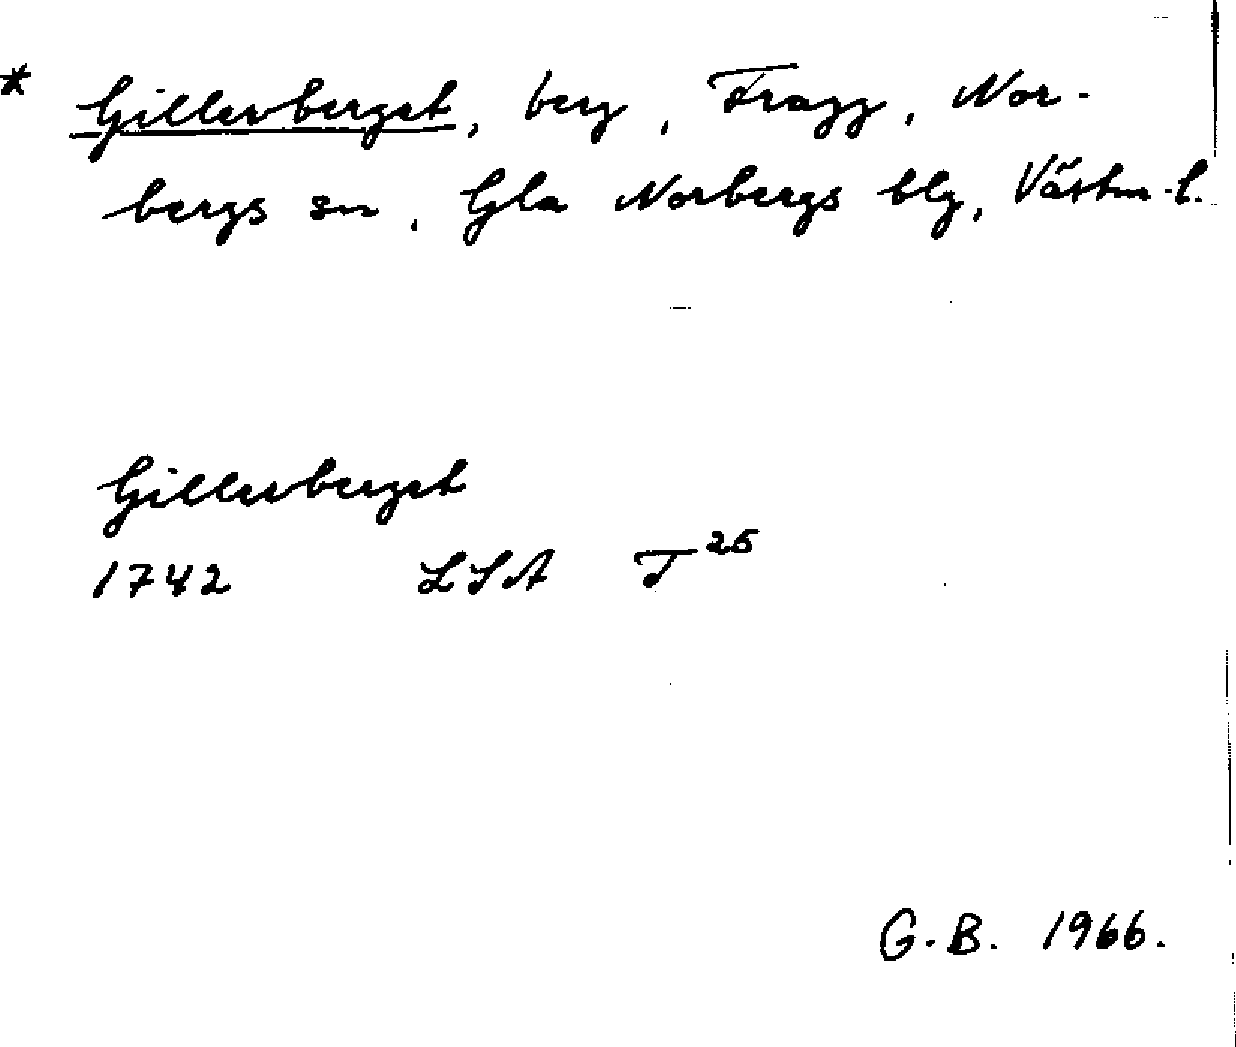 * Gillerberget, berg, Fragg, Nor-
bergs sn, Gla Norbergs blg, Västm. l.
Gillerberget
1742 LSA T 25
G.B. 1966.